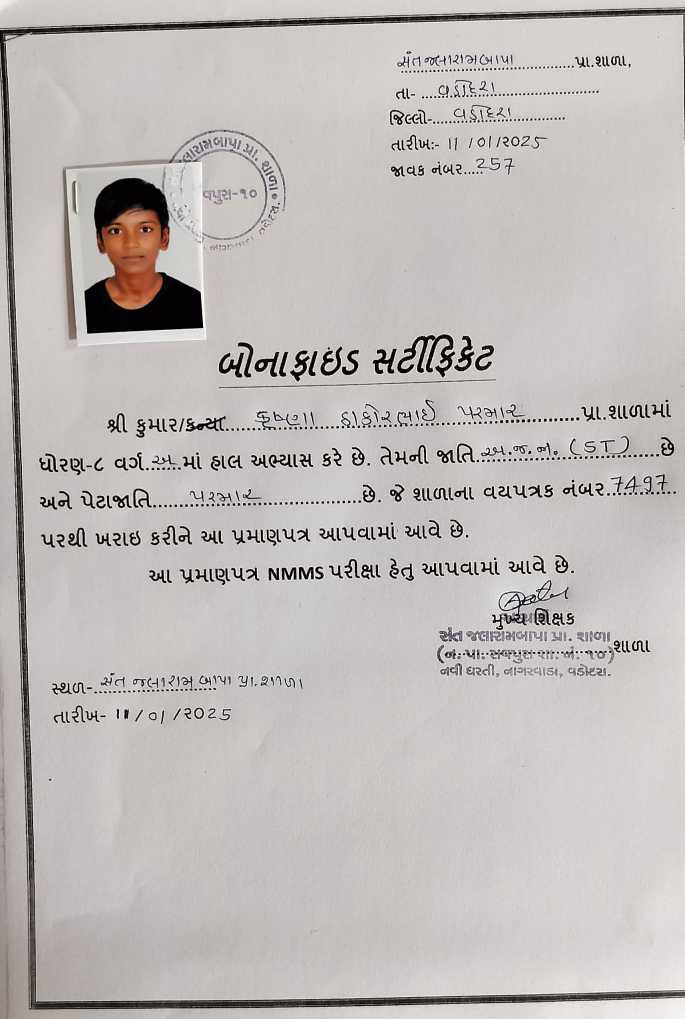 સંત જલારામ બાપા ..........પ્રા.શાળા,
તા- ....વડોદરા....................
જિલ્લો-....વડોદરા.............
તારીખ:- 11 / 01 /2025
જાવક નંબર.....257
જલારામબાપા પ્રા. શાળા
પુરા-૧૦
નાગરવાડા વડોદરા.
બોનાફાઇડ સર્ટીફિકેટ
શ્રી કુમાર/કન્યા......ક્રૃષ્ણા ઠાકોરભાઈ પરમાર..........પ્રા.શાળામાં
ધોરણ-૮ વર્ગ..અ..માં હાલ અભ્યાસ કરે છે. તેમની જાતિ..અ.જ.જા. (ST).....છે
અને પેટાજાતિ.......પરમાર...............છે. જે શાળાના વયપત્રક નંબર..7497..
પરથી ખરાઇ કરીને આ પ્રમાણપત્ર આપવામાં આવે છે.
આ પ્રમાણપત્ર NMMS પરીક્ષા હેતુ આપવામાં આવે છે.
મુખ્ય શિક્ષક
સંત જલારામબાપા પ્રા. શાળા
(ન. પા. સવાપુરા શા. નં. ૧૦) શાળા
નવી ધરતી, નાગરવાડા, વડોદરા.
સ્થળ-..સંત જલારામ બાપા પ્રા.શાળા
તારીખ- 11 / 01 /2025